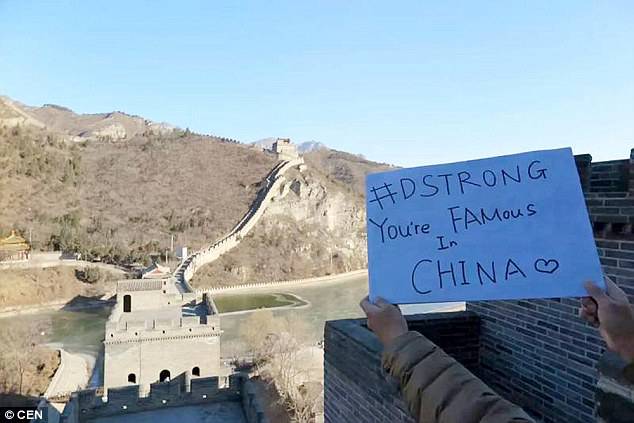 #DSTRONG
You're FAMous
In
CHINA♡
© CEN